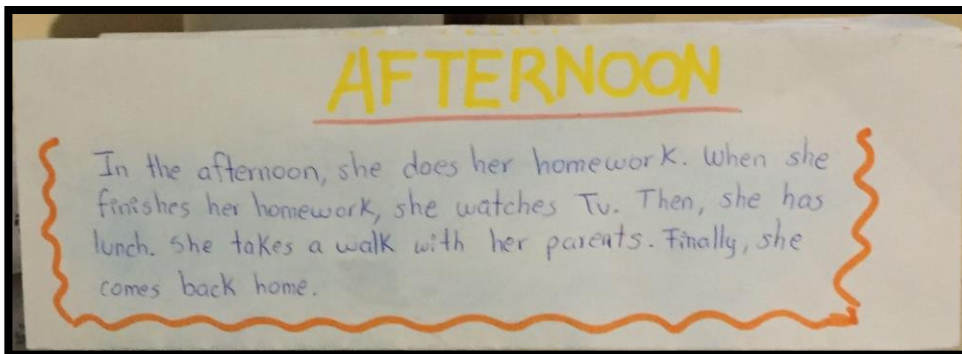 AFTERNOON
In the afternoon, she does her homework. When she
finishes her homework, she watches Tv. Then, she has
lunch. She takes a walk with her parents. Finally, she
comes back home.